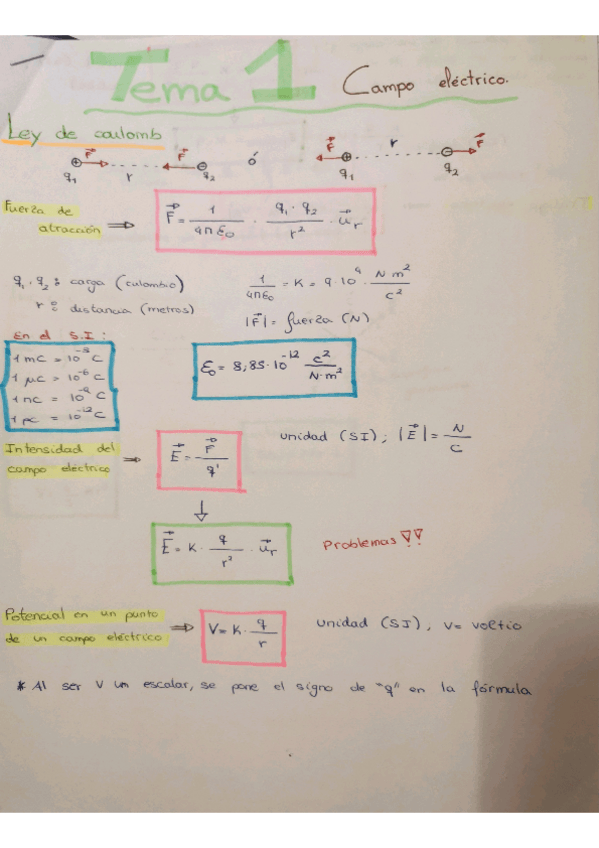 Tema 1 Campo eléctrico.
Ley de coulomb
F⃗ F⃗ F⃗ r F⃗
q₁ r q₂ ó q₁ q₂
Fuerza de
atracción ⇒ F⃗ = 1/4πε₀ · q₁·q₂/r² · u⃗r
q₁, q₂ : carga (culombio) 1/4πε₀ = K = 9·10⁹ · N·m²/c²
r : distancia (metros) |F⃗| = fuerza (N)
En el S.I :
1 mC = 10⁻³ C
1 μC = 10⁻⁶ C
1 nC = 10⁻⁹ C
1 pC = 10⁻¹² C
ε₀ = 8,85·10⁻¹² c²/N·m²
Intensidad del
campo eléctrico ⇒ E⃗ = F⃗/q' unidad (SI) ; |E⃗| = N/C
↓
E⃗ = K · q/r² · u⃗r Problemas !!
Potencial en un punto
de un campo eléctrico ⇒ V = K · q/r unidad (SI), V = voltio
* Al ser V un escalar, se pone el signo de "q" en la fórmula